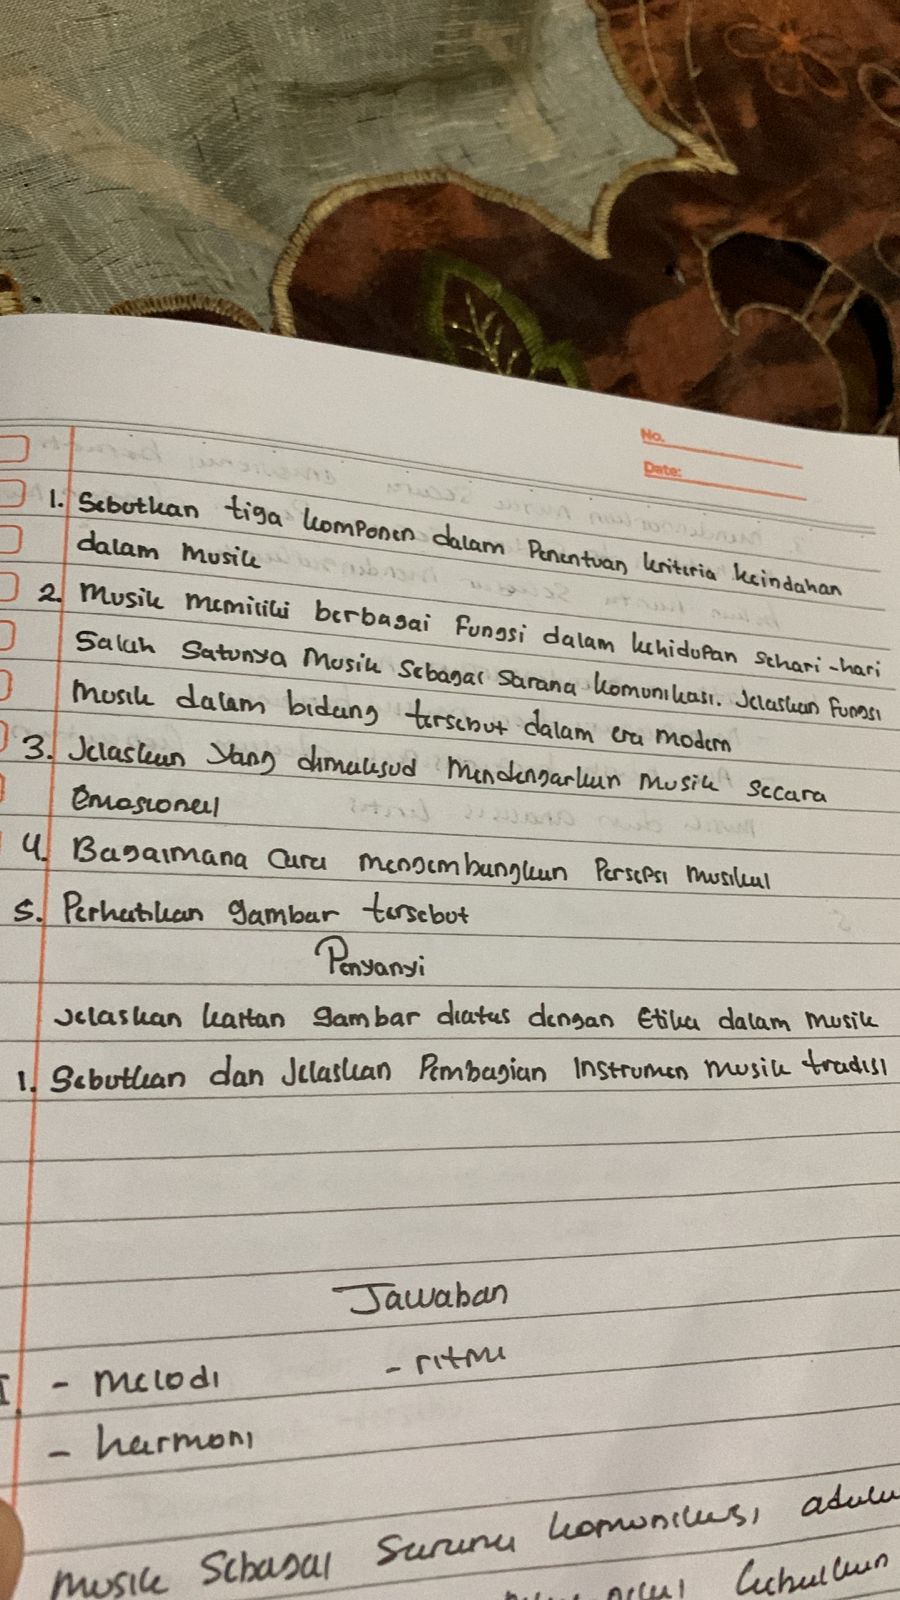 No.
Date:
1. Sebutkan tiga komponen dalam Penentuan kriteria keindahan
dalam musik
2. Musik memiliki berbagai Fungsi dalam kehidupan sehari-hari
Salah Satunya Musik Sebagai Sarana komunikasi. Jelaskan Fungsi
musik dalam bidang tersebut dalam era modern
3. Jelaskan yang dimaksud Mendengarkan musik secara
Emosional
4. Bagaimana Cara mengembangkan Persepsi musikal
5. Perhatikan gambar tersebut
Penyanyi
Jelaskan kaitan gambar diatas dengan Etika dalam musik
1. Sebutkan dan Jelaskan Pembagian Instrumen musik tradisi
Jawaban
I. - melodi - ritmi
- harmoni
musik Sebagai Sarana komunikasi